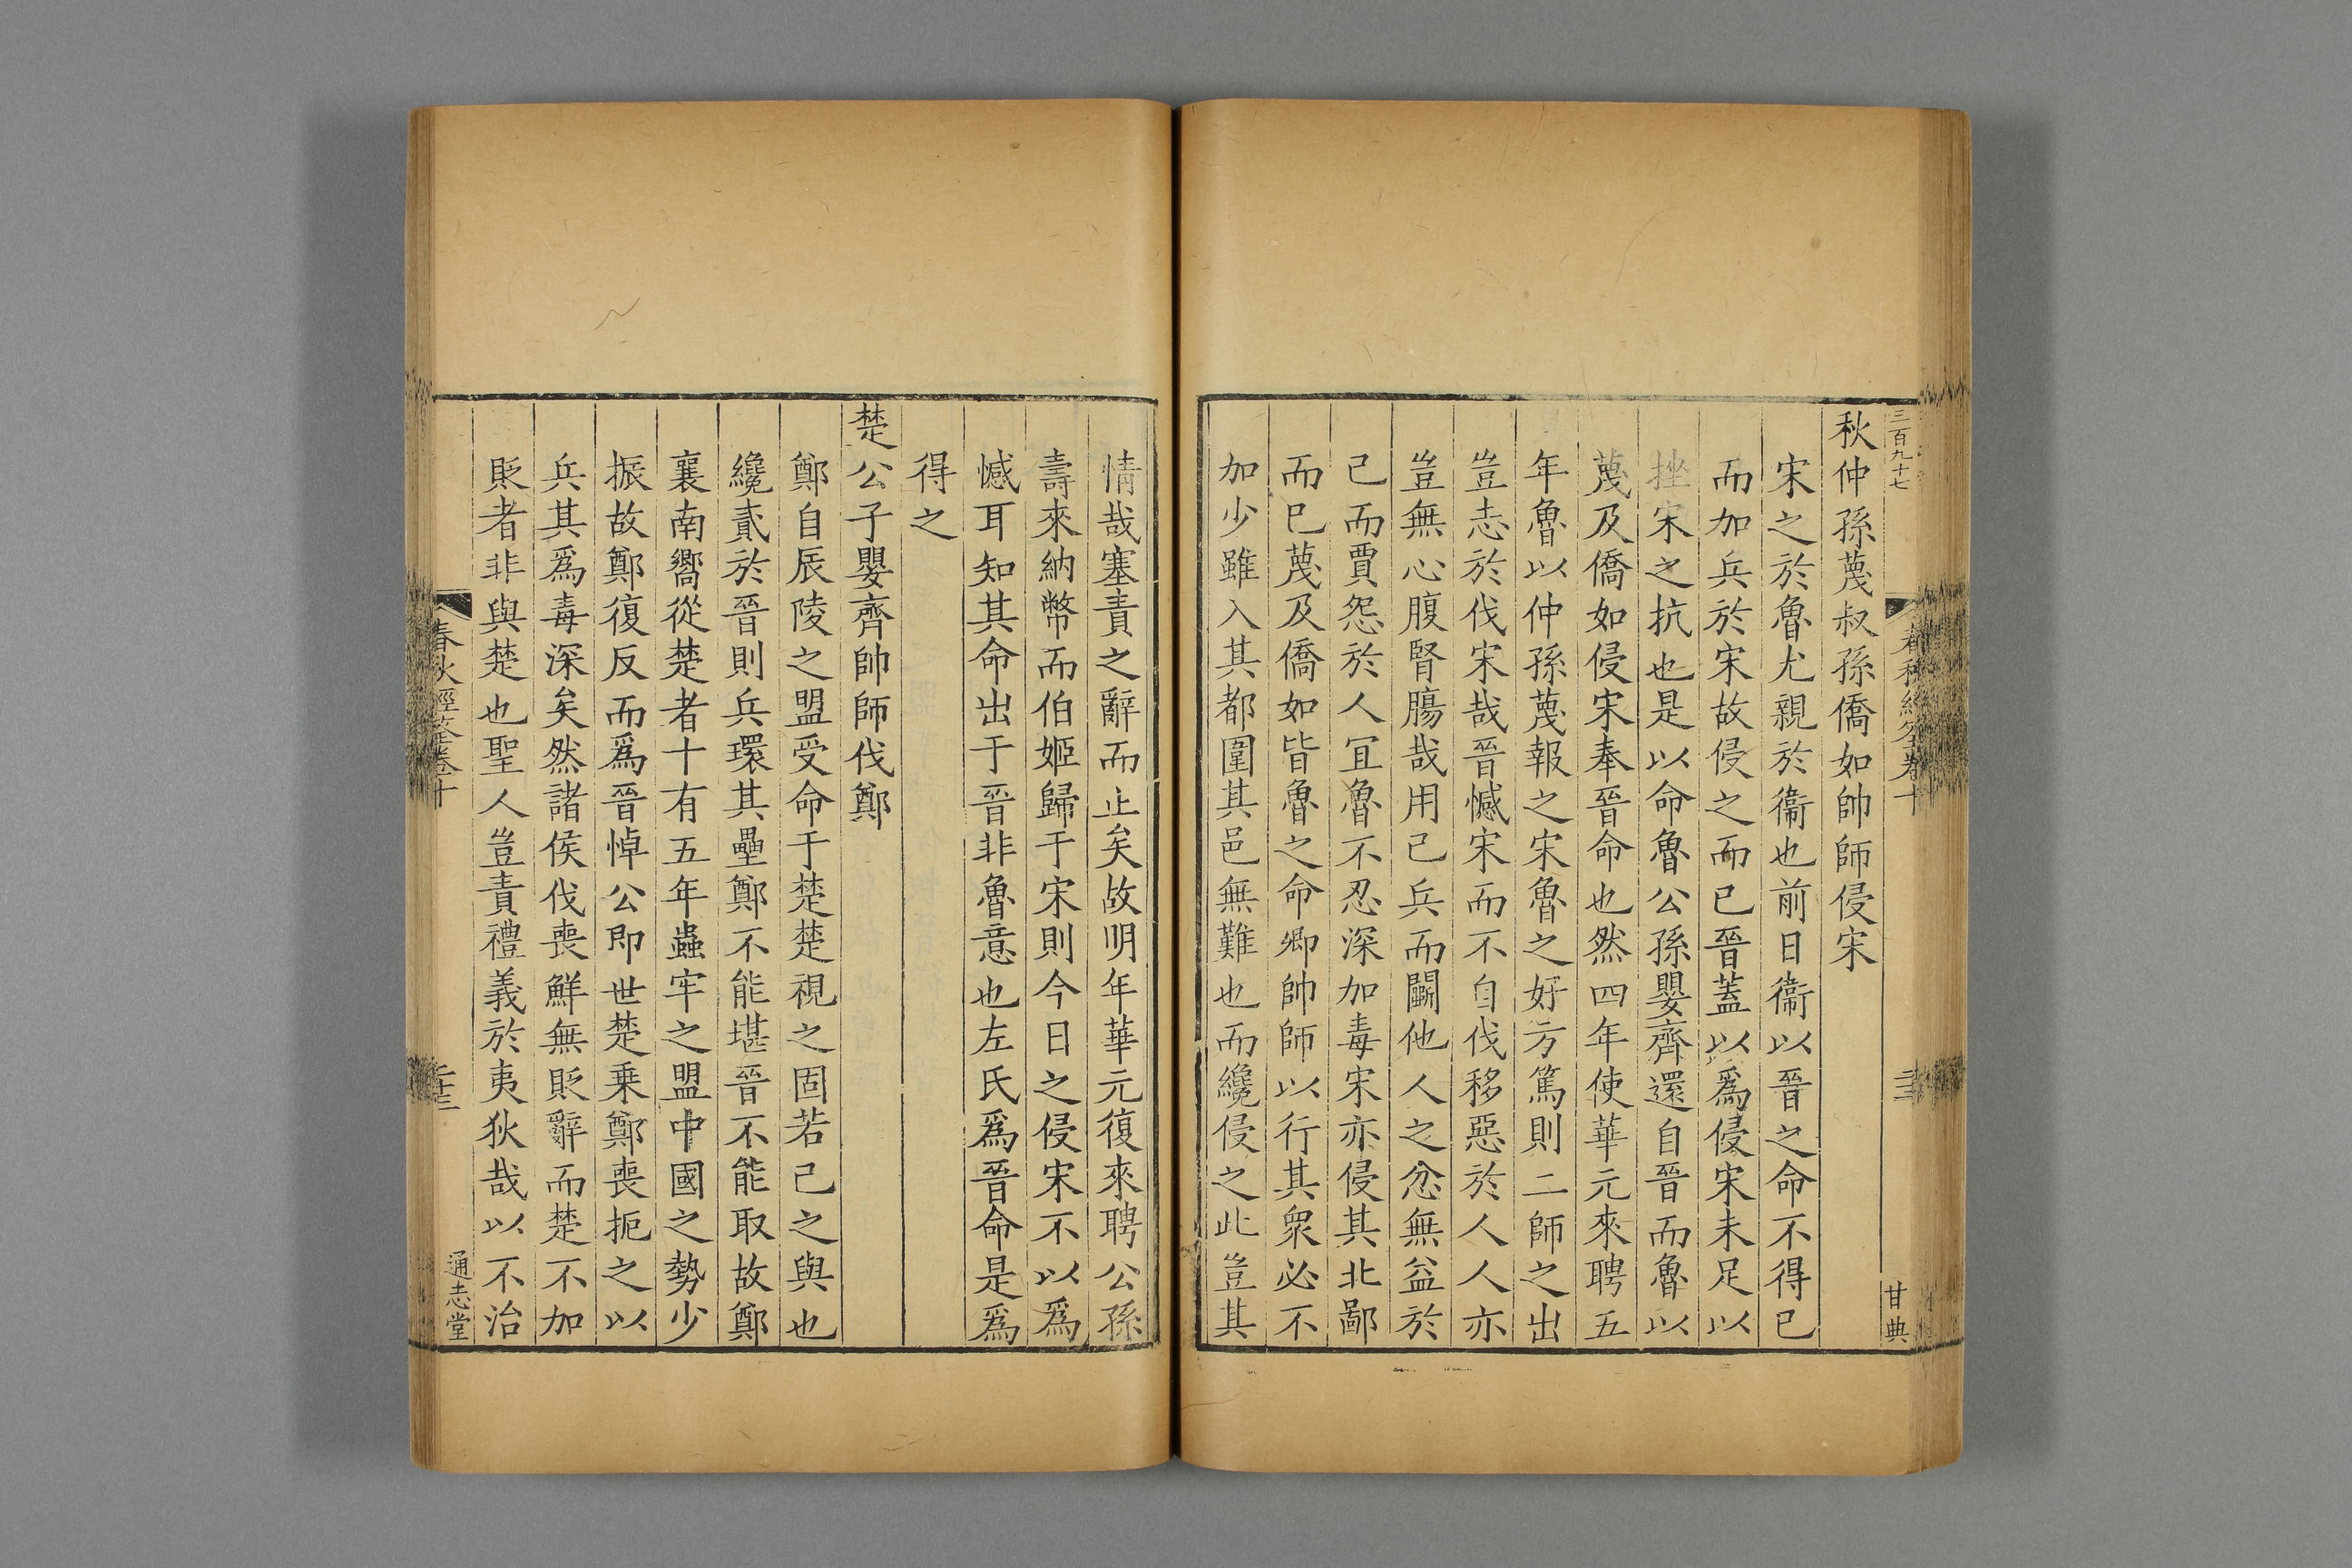 三百九十七
甘典
秋仲孫蔑叔孫僑如帥師侵宋
宋之於魯尤親於衞也前日衞以晉之命不得已
而加兵於宋故侵之而已晉蓋以爲侵宋未足以
挫宋之抗也是以命魯公孫嬰齊還自晉而魯以
蔑及僑如侵宋奉晉命也然四年使華元來聘五
年魯以仲孫蔑報之宋魯之好方篤則二師之出
豈志於伐宋哉晉憾宋而不自伐移惡於人人亦
豈無心腹腎腸哉用己兵而鬭他人之忿無益於
己而賈怨於人宜魯不忍深加毒宋亦侵其北鄙
而已蔑及僑如皆魯之命卿帥師以行其衆必不
加少雖入其都圍其邑無難也而纔侵之此豈其
情哉塞責之辭而止矣故明年華元復來聘公孫
壽來納幣而伯姬歸于宋則今日之侵宋不以爲
憾耳知其命出于晉非魯意也左氏爲晉命是爲
得之
楚公子嬰齊帥師伐鄭
鄭自辰陵之盟受命于楚楚視之固若己之與也
纔貳於晉則兵環其壘鄭不能堪晉不能取故鄭
襄南嚮從楚者十有五年蟲牢之盟中國之勢少
振故鄭復反而爲晉悼公即世楚乗鄭喪扼之以
兵其爲毒深矣然諸侯伐喪鮮無貶辭而楚不加
貶者非與楚也聖人豈責禮義於夷狄哉以不治
春秋經筌卷十
二十三
通志堂